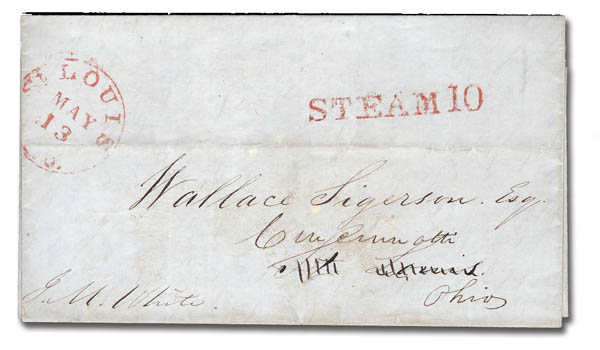 ST LOUIS
MAY
13
STEAM 10
Wallace Sigerson. Esq.
Ohio
J. M. White.